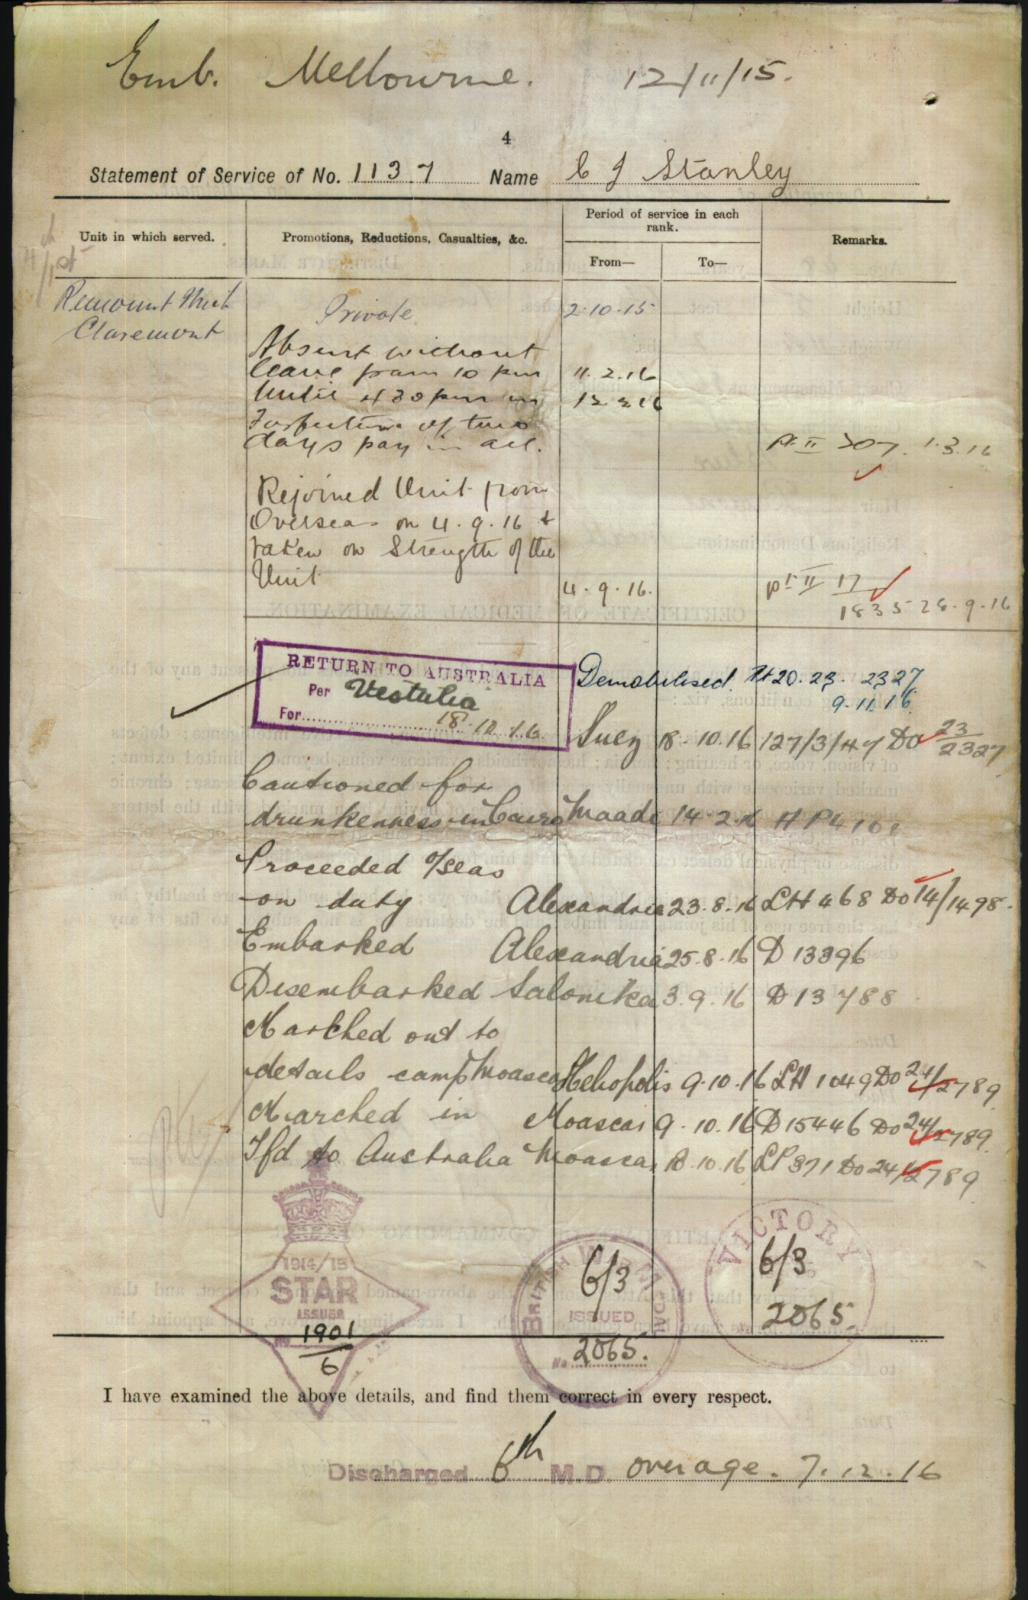 Emb. Melbourne. 12/11/15.
4
Statement of Service of No. 1137 Name C J Stanley
Unit in which served.
Promotions, Reductions, Casualties, &c.
Period of service in each rank.
From—
To—
Remarks.
Remount Unit
Claremont
Private 2.10.15
Absent without
leave from 10 pm 11.2.16
Until 430 pm on 12 2 16
Forfeiture of two
days pay in all. pt II 307. 1.3.16
Rejoined Unit from
Overseas on 4.9.16 &
taken on Strength of the
Unit 4.9.16. pt II 17
1835 28.9.16
RETURN TO AUSTRALIA
Per Vestalia
For 18.12.16
Demobilised. Pt 20.23. 2327
9.11.16
Suez 18.10.16 127/3/47 Do 23/2327
Cautioned for
drunkenness in Cairo Maadi 14.2.16
Proceeded o/seas
on duty Alexandria 23.8.16 LH 468 Do 14/1498.
Embarked Alexandria 25.8.16 D 13396
Disembarked Salonika 3.9.16 D 13788
Marched out to
details camp Moascar Heliopolis 9.10.16 LH 1049 Do 24/2789
Marched in Moascar 9.10.16 D 15446 Do 24/2789
Tfd to Australia Moascar 10.16 LP 371 Do 24/2789
1914/15
STAR
ISSUED
No 1901/6
BRITISH WAR MEDAL
6/3
ISSUED
No 2065.
VICTORY
6/3
2065.
I have examined the above details, and find them correct in every respect.
Discharged 6th M.D. over age. 7.12.16